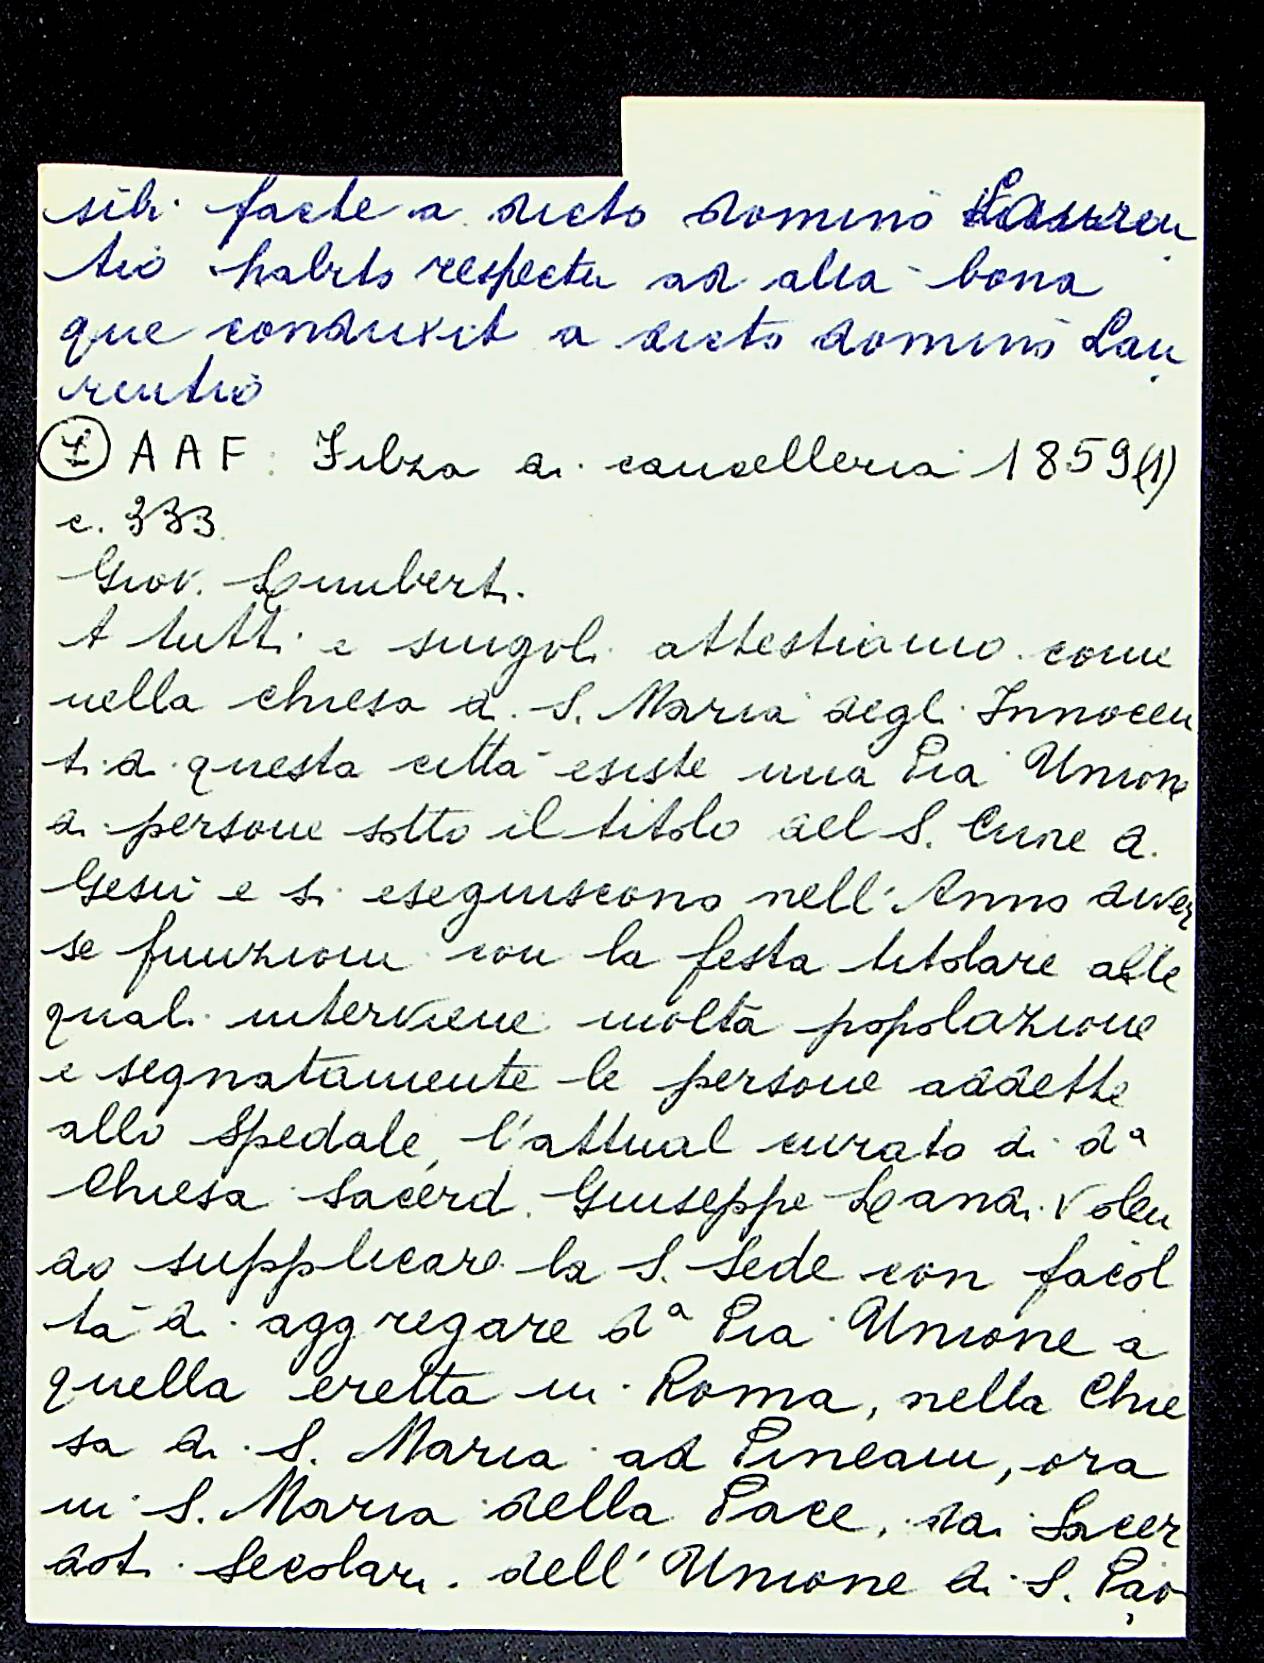 sibi facte a dicto domino Lauren
tio habito respectu ad alia bona
que conduxit a dicto domino Lau
rentio
AAF. Filza di cancelleria 1859(1)
c. 333
Giov. Limberti.
A tutti e singoli attestiamo come
nella chiesa di S. Maria degli Innocen
ti di questa città esiste una Pia Unione
di persone sotto il titolo del S. Cuore di
Gesù e si eseguiscono nell'Anno diver
se funzioni con la festa titolare alle
quali interviene molta popolazione
e segnatamente le persone addette
allo Spedale, l'attual curato di da
Chiesa Sacerd. Giuseppe Landi. Volen
do supplicare la S. Sede con facol
tà di aggregare da Pia Unione a
quella eretta in Roma, nella Chie
sa di S. Maria ad Pineam, ora
in S. Maria della Pace, dai Sacer
doti Secolari dell'Unione di S. Pao